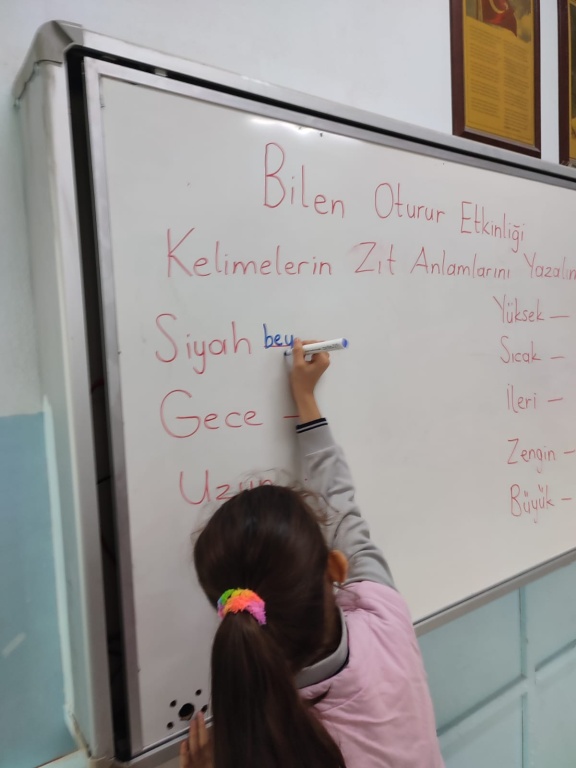 Bilen Oturur Etkinliği
Kelimelerin Zıt Anlamlarını Yazalım
Siyah bey
Gece -
Uzun
Yüksek -
Sıcak -
İleri -
Zengin -
Büyük -